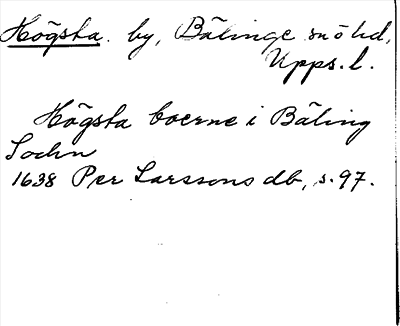 Högsta. by, Bälinge snöhd,
Upps. l.
Högsta boerne i Bäling
Sochn
1638 Per Larssons db, s. 97.